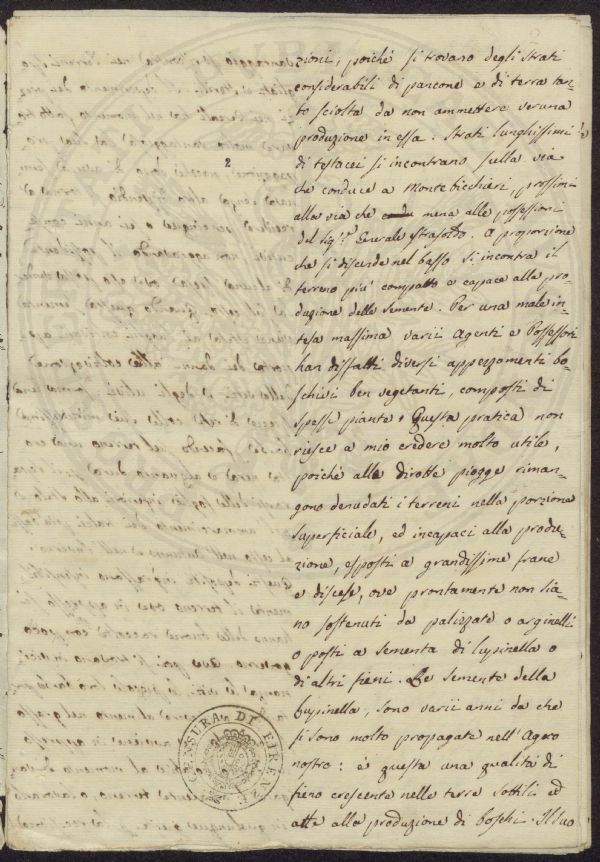 2
zioni, poiché si trovano degli strati
considerabili di pancone e di terra tan-
to sciolta da non ammettere veruna
produzione in essa. Strati lunghissimi
di testacei si incontrano sulla via
che conduce a Montebicchieri, prossimi
alla via che mena alle possessioni
del Sig.r Generale Strasoldo. A proporzione
che si discende nel basso si incontra il
terreno più compatto e capace alla pro-
duzione delle semente. Per una male in-
tesa massima varii Agenti e Possessori
han disfatti diversi appezzamenti bo-
schivi ben vegetanti, composti di
spesse piante. Questa pratica non
riesce a mio credere molto utile,
poiché alle dirotte piogge riman-
gono denudati i terreni nella porzione
superficiale, ed incapaci alla produ-
zione, esposti a grandissime frane
e discese, ove prontamente non sia-
no sostenuti da palizzate o arginelli
o posti a sementa di lupinella o
di altri fieni. Le semente della
Lupinella, sono varii anni da che
si sono molto propagate nell'Agro
nostro: è questa una qualità di
fieno crescente nelle terre sottili ed
atte alla produzione di boschi. Il suo
CENSURA DI FIRENZE